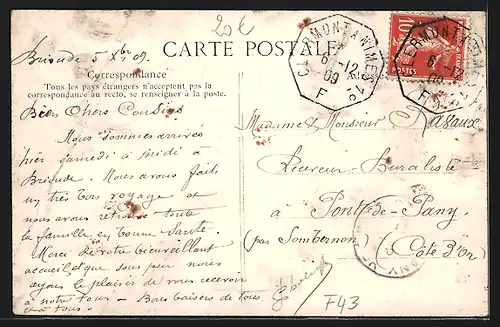 20€
CARTE POSTALE
Brioude 5 Xbre 09.
Correspondance
Tous les pays étrangers n'acceptent pas la
correspondance au recto, se renseigner à la poste.
Adresse
CLERMONT A NIMES 1°
6-12
09
F
10
POSTES
CLERMONT A NIMES
6-12
09
F
Bien Chers Cousins
Nous sommes arrivés
hier samedi à midi à
Brioude. Nous avons fait
un très bon voyage et
nous avons retrouvé toute
la famille en bonne santé.
Merci de votre bienveillant
accueil, et que nous
ayons le plaisir de vous recevoir
à notre tour - Bons baisers de tous
et à tous.
Madame & Monsieur
Receveur-Buraliste
à Pont-de-Pany
(par Sombernon) (Côte d'Or)
F43